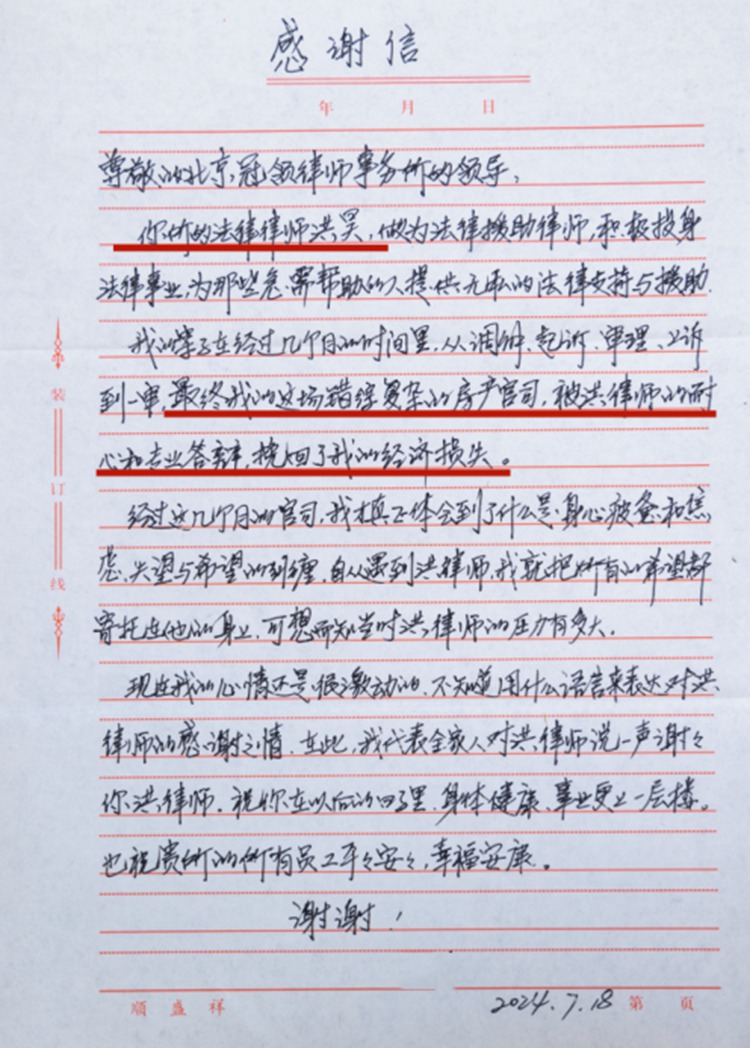 感谢信
年 月 日
尊敬的北京冠领律师事务所的领导：
你所的法律律师洪昊，做为法律援助律师，积极投身
法律事业，为那些急需帮助的人提供无私的法律支持与援助.
我的案子在经过几个月的时间里，从调解、起诉、审理、上诉
到一审，最终我的这场错综复杂的房产官司，被洪律师的耐
心和专业答辩，挽回了我的经济损失。
经过这几个月的官司，我才真正体会到了什么是身心疲惫和焦
虑、失望与希望的纠缠，自从遇到洪律师，我就把所有的希望都
寄托在他的身上，可想而知当时洪律师的压力有多大.
现在我的心情还是很激动的，不知道用什么语言来表达对洪
律师的感谢之情，在此，我代表全家人对洪律师说一声谢々
你洪律师，祝你在以后的日子里，身体健康、事业更上一层楼。
也祝贵所的所有员工平々安々，幸福安康。
谢谢！
装
订
线
顺盛祥
2024.7.18 第 页